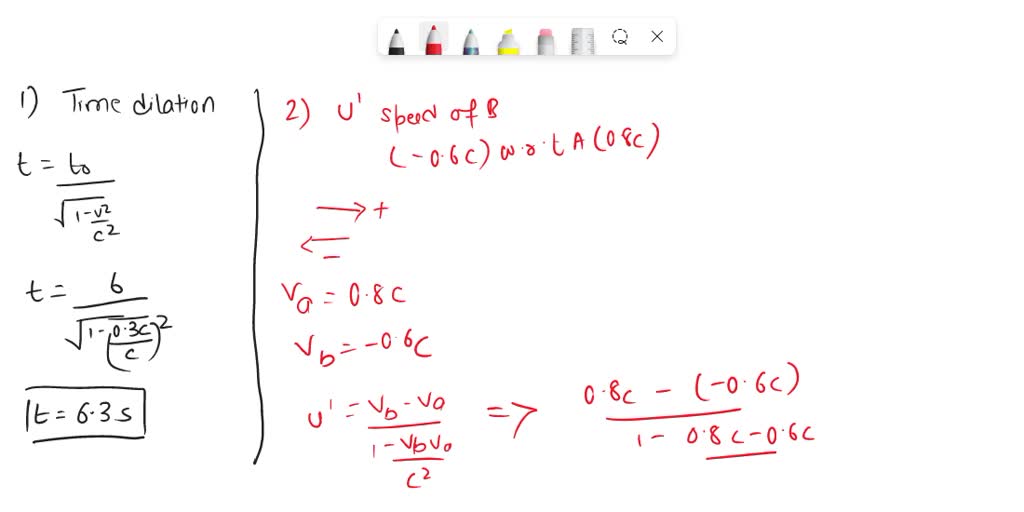 1) Time dilation
t = t₀ / √(1-v²/c²)
t = 6 / √(1-(0.3c/c)²)
t = 6.3 s
2) U' speed of B
(-0.6c) w.r.t A (0.8c)
→ +
← -
Va = 0.8c
Vb = -0.6c
U' = (Vb - Va) / (1 - VbVa/c²) => 0.8c - (-0.6c) / 1 - 0.8c-0.6c